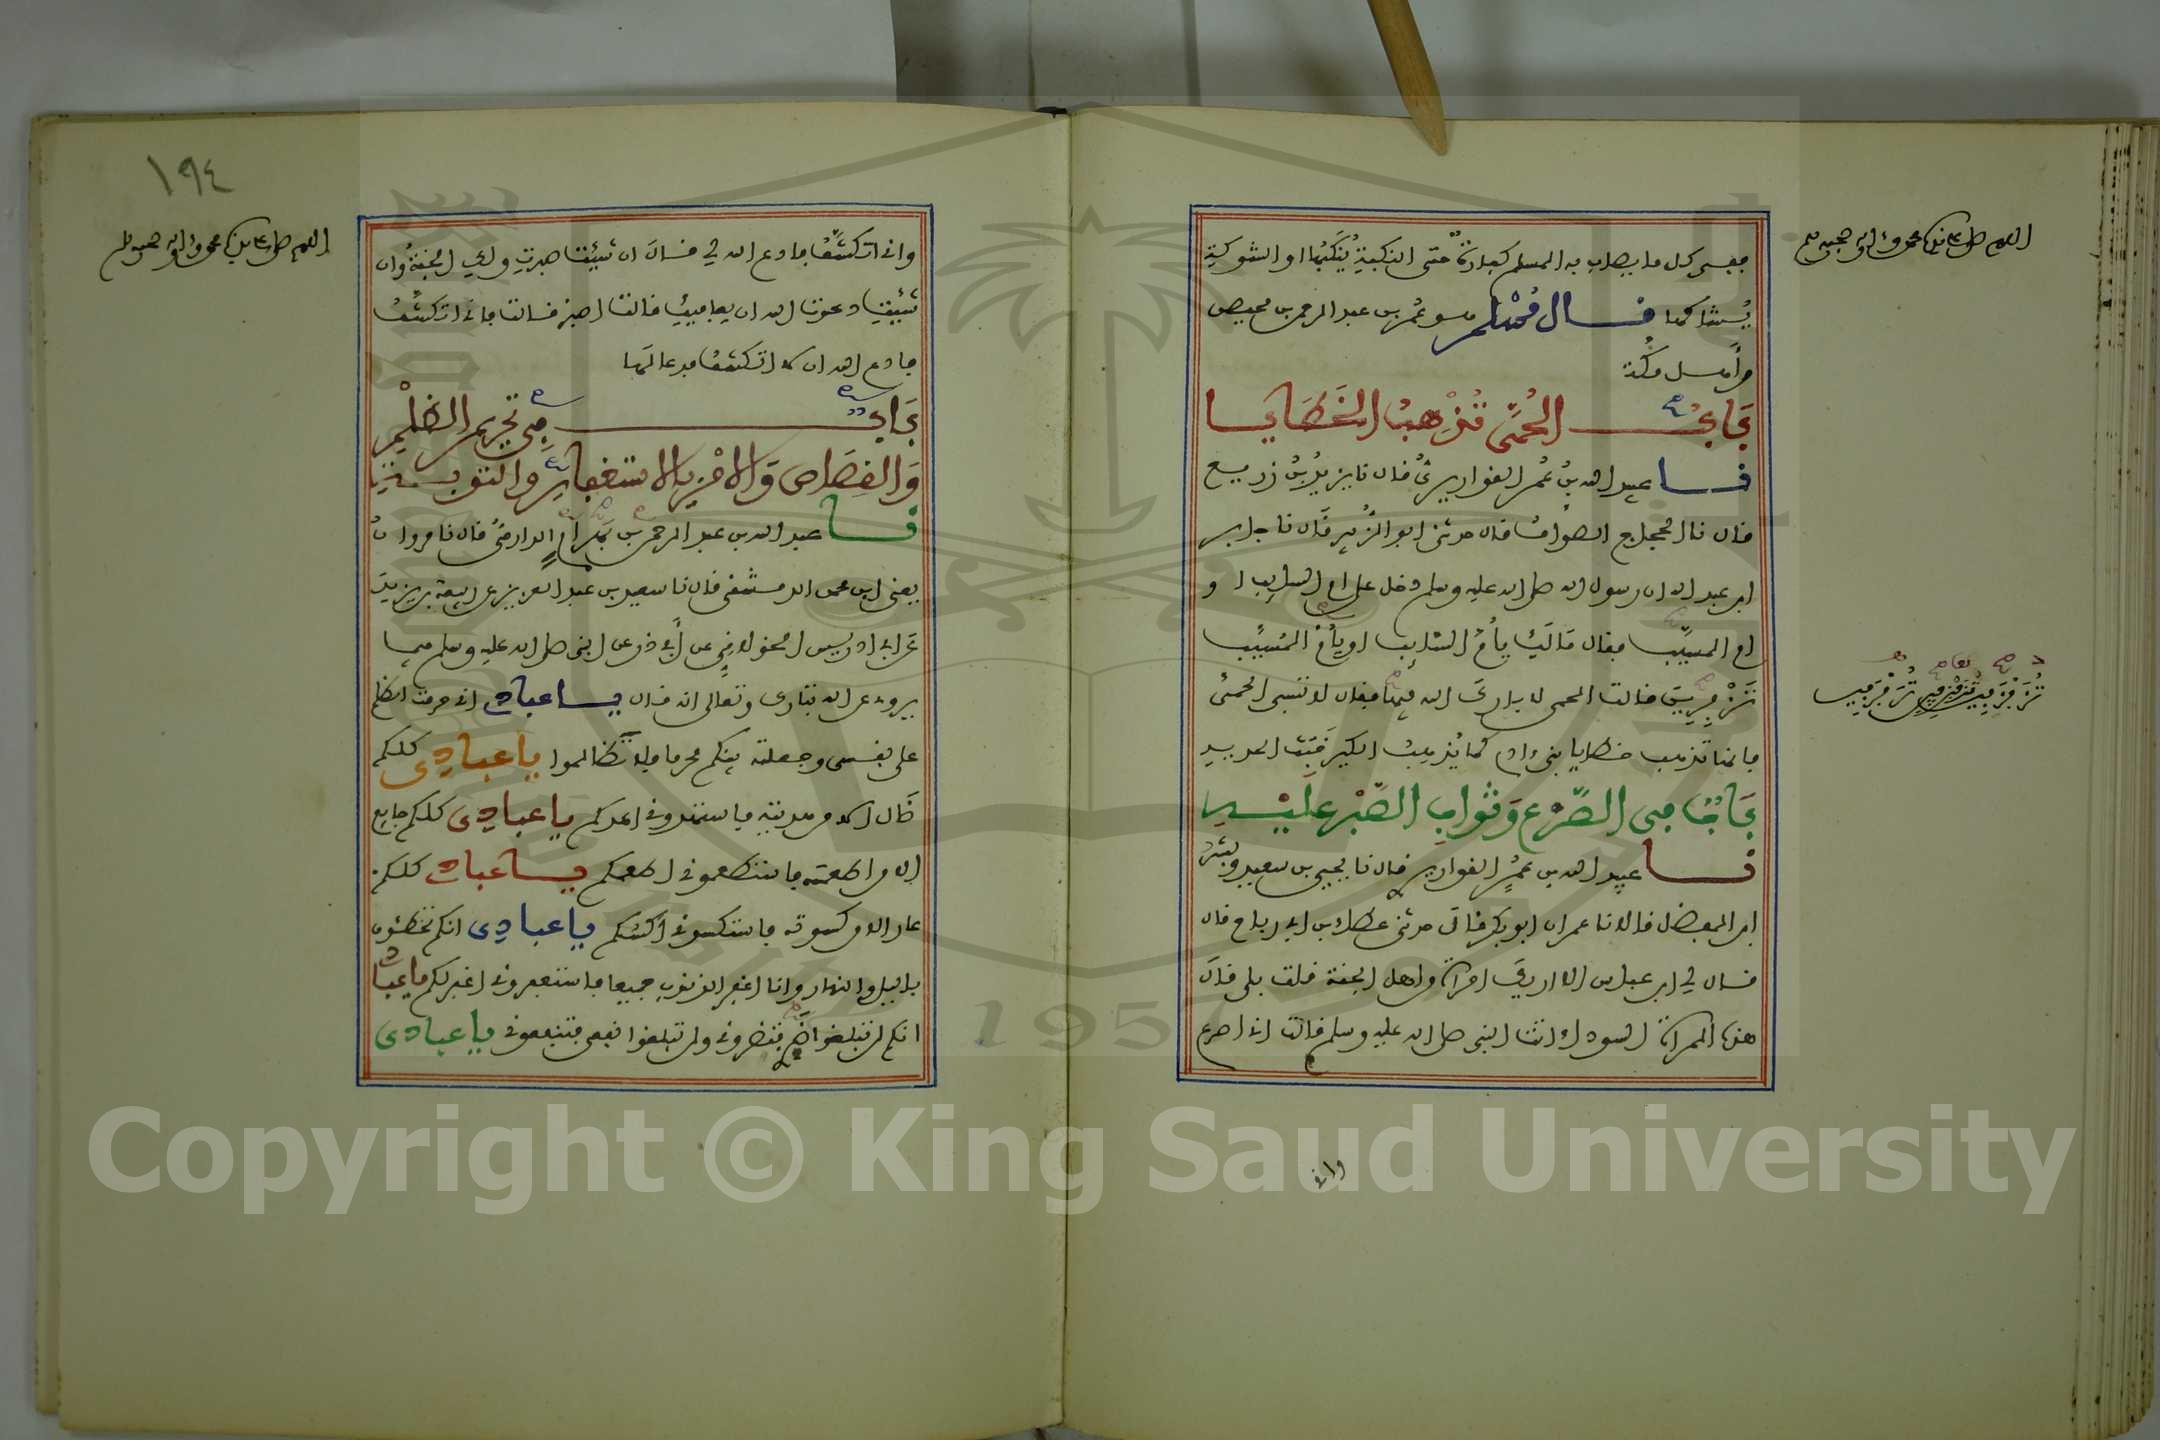 اللهم صل على سيدنا محمد وءاله وصحبه وسلم
ففي كل ما يصاب به المسلم كفارة حتى النكبة يُنكَبُها او الشوكة
يُشاكها قال مُسْلم هو عُمر بن عبد الرحمن بن محيصن
من أهل مكة
بَابُ الحُمَّى تُذْهِبُ الخَطَايا
نا عبيد الله بنُ عُمر القواريريُّ قال نا يزيدُ بنُ زريع
قال نا الحجاج الصواف قال حدثني ابو الزُّبير قال نا جابر
ابن عبد الله ان رسول الله صلى الله عليه وسلم دخل على ام السايب ا و
ام المسيَّب فقال مَا لَكِ يا أُمَّ السَّايِب او يا أُمَّ المُسَيَّب
تزفزفين قالت الحمى لا بارك الله فيها فقال لا تسبي الحمى
فانها تذهب خطايا بني ءادم كما يُذهِبُ الكير خَبَثَ الحديد
بَابٌ في الصَّرْع وَثَوابِ الصَّبْرِ عَلَيْهِ
نا عبيد الله بن عُمر القواريري قال نا يحيى بن سعيد وبشرُ
ابن المفضل قالا نا عمران ابو بكر قال حدثني عطاء بن ابي رباح قال
قال لي ابن عباس الا اريكَ امراة من اهل الجنة قلت بلى قال
هذه المراة السوداء اتت النبي صلى الله عليه وسلم قالت اني اصرع
واني
١٩٤
اللهم صل على سيدنا محمد وءاله وصحبه وسلم
واني اتكشَّفُ فادع الله لي قال ان شئتِ صبرتِ ولكِ الجنةُ وان
شئتِ دعوت الله ان يعافيكِ قالت اصبر قالت فاني اتكشَّفُ
فادع الله ان لا اتكشف فدعا لها
بَابٌ في تحريم الظلْمِ
وَالقِصَاص وَالامْرِ بالاستغفارِ والتوبةِ
نا عبد الله بن عبد الرحمن بن بَهرام الدارميُّ قال نا مروانُ
يعني ابن محمد الدمشقي قال نا سعيد بن عبد العزيز عن ربيعة بن يزيدَ
عَن ابي ادريس الخولانيِّ عن أبي ذر عن النبي صلى الله عليه وسلم فيما
يرويه عن الله تبارك وتعالى انه قال يا عبادي اني حرمت الظلم
على نفسي وجعلته بينكم محرما فلا تظالموا يا عبادي كلكم
ضَال الا من هديته فاستهدوني اهدكم يا عبادي كلكم جايع
الا من اطعمته فاستطعموني اطعمكم يا عبادي كلكم
عار الا من كسوته فاستكسوني أكسُكم يا عبادي انكم تخطئون
بالليل والنهار وانا اغفر الذنوب جميعا فاستغفروني اغفر لكم يا عبادي
انكم لن تبلغوا ضري فتضروني ولن تبلغوا نفعي فتنفعوني يا عبادي
Copyright © King Saud University
1957